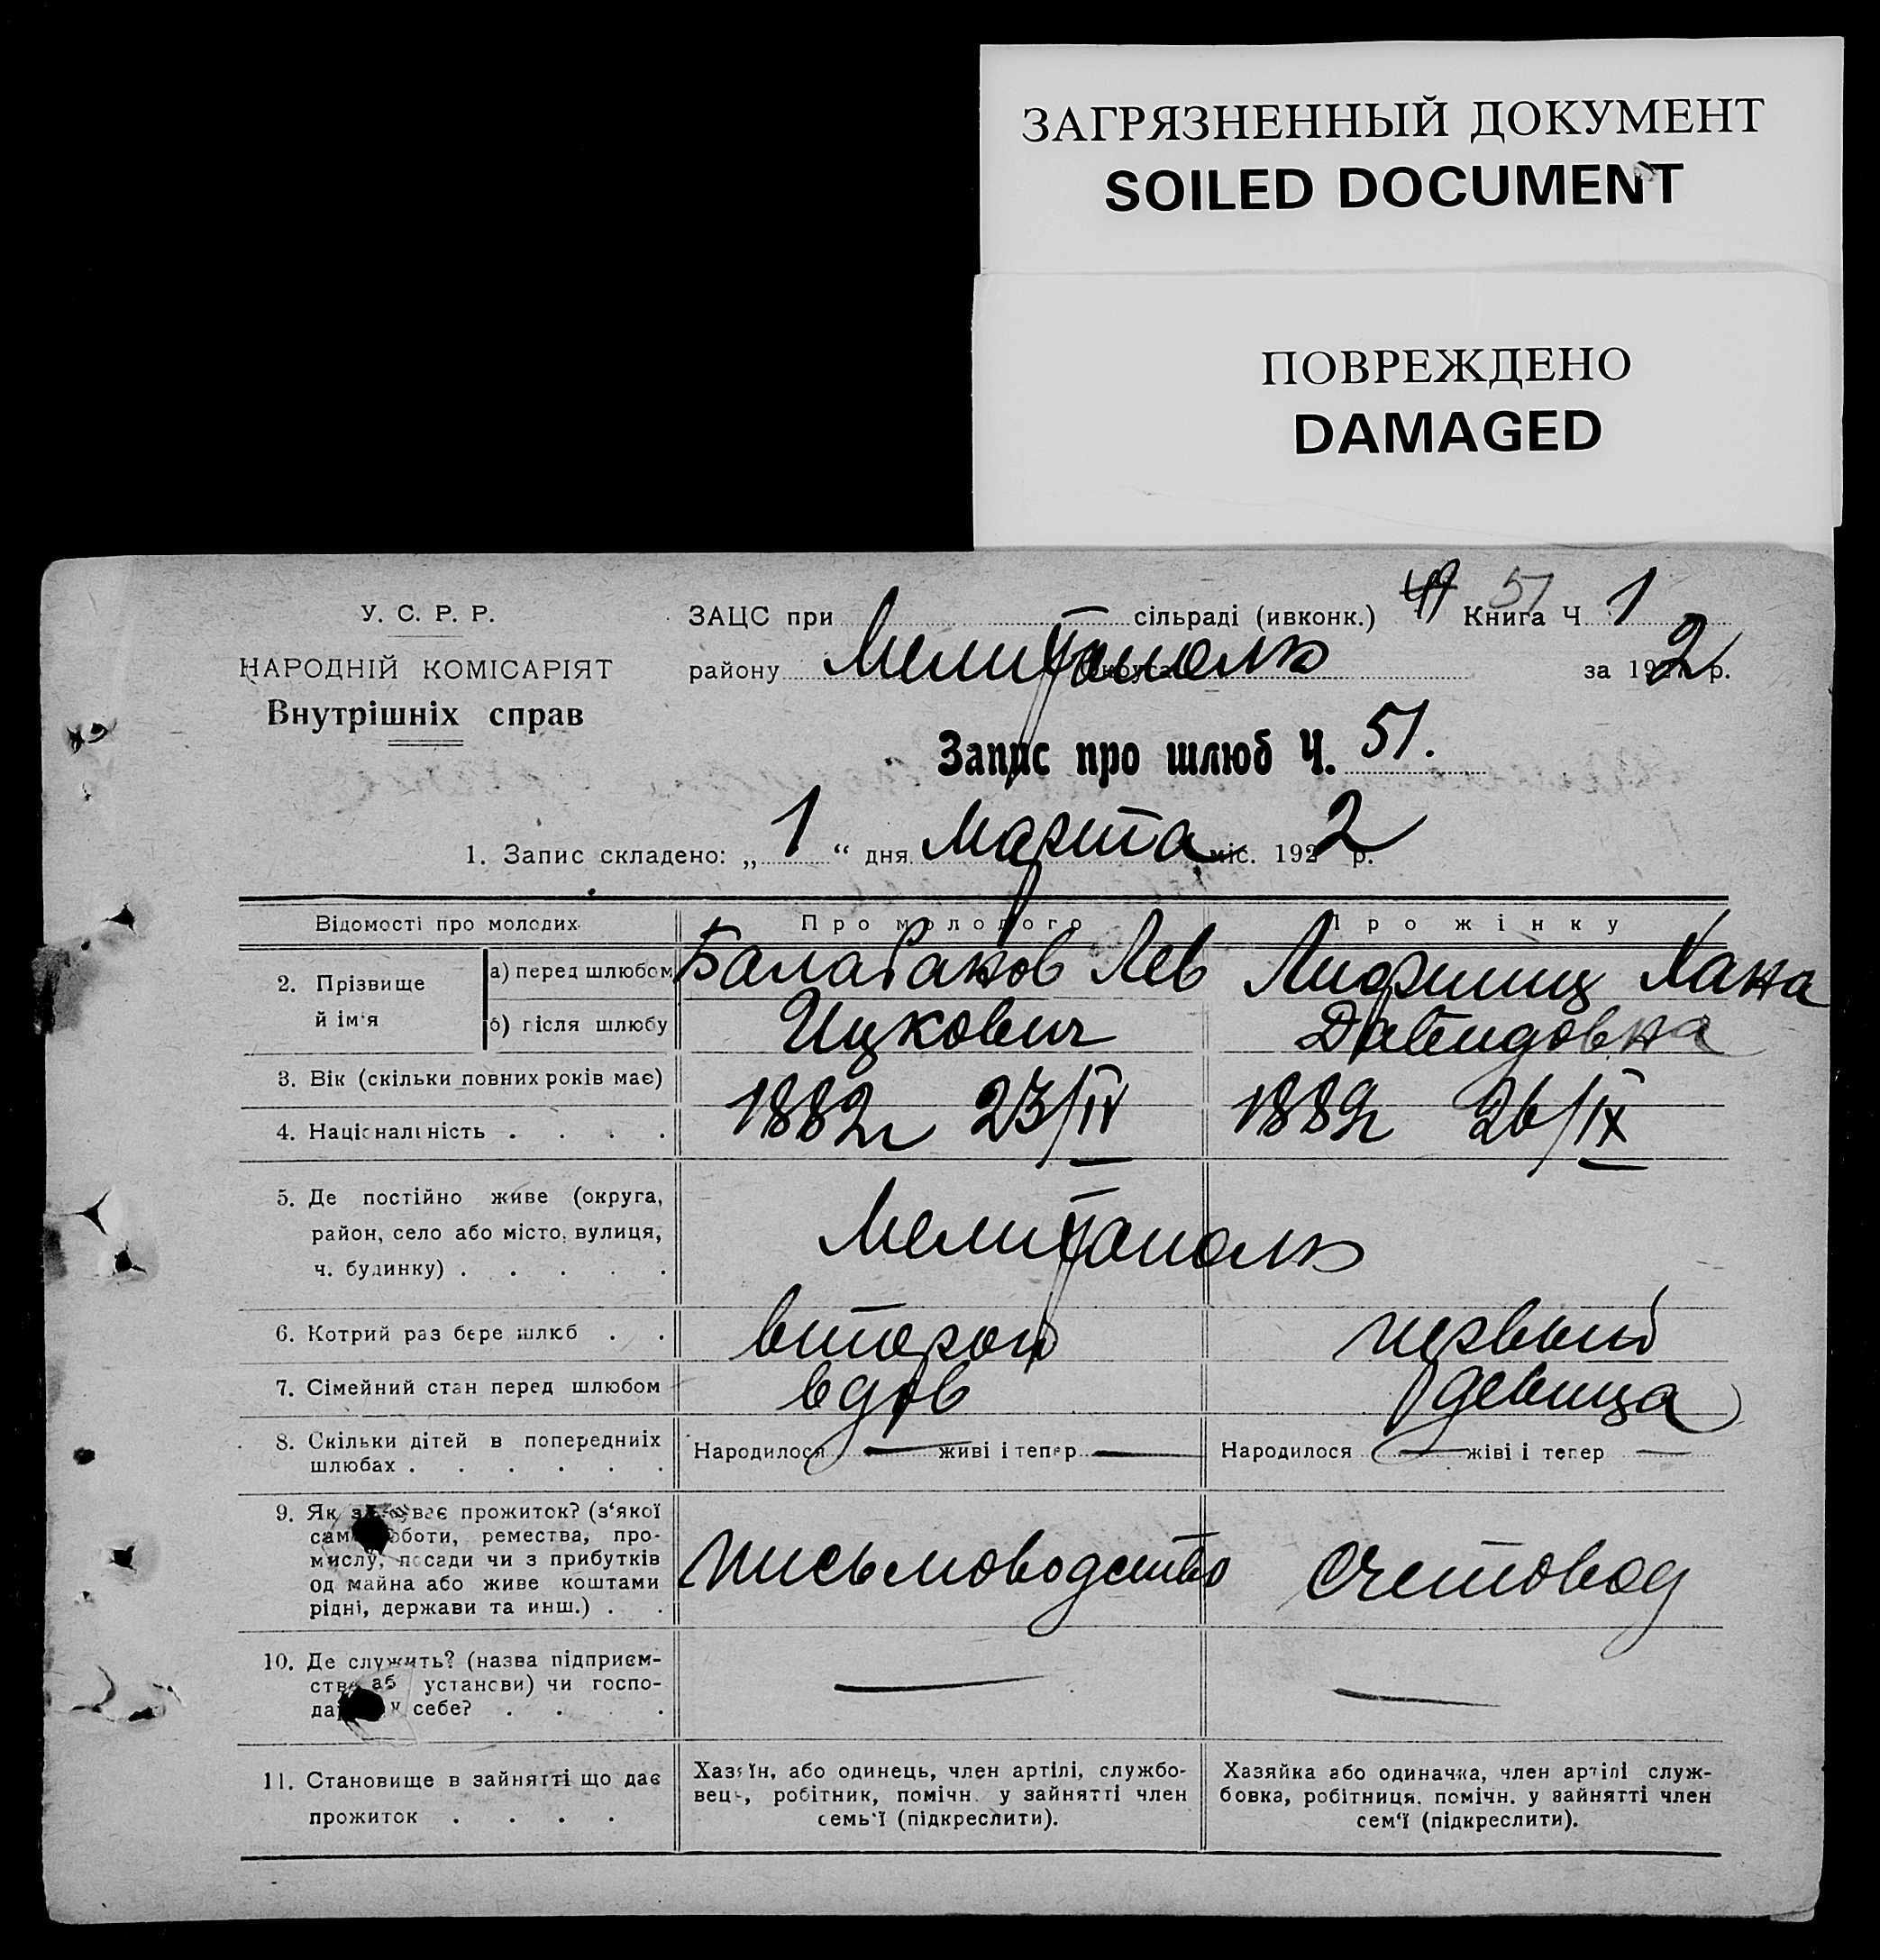 ЗАГРЯЗНЕННЫЙ ДОКУМЕНТ
SOILED DOCUMENT
ПОВРЕЖДЕНО
DAMAGED
У. С. Р. Р.
НАРОДНІЙ КОМІСАРІЯТ
Внутрішніх справ
ЗАЦС при сільраді (ивконк.) 51 Книга Ч 1
району Мелитополь за 192 2 р.
Запис про шлюб Ч. 51.
1. Запис складено: „ 1 “ дня Марта міс. 192 2 р.
Відомості про молодих Про молодого Про жінку
2. Прізвище й ім'я
а) перед шлюбом Балабанов Лев Лифшиц Хана
б) після шлюбу Ицкович Давидовна
3. Вік (скільки повних років має)
4. Національність . . . . 1882г 23/IV 1889г 26/IX
5. Де постійно живе (округа,
район, село або місто, вулиця, Мелитополь
ч. будинку) . . . . .
6. Котрий раз бере шлюб . . второй первый
7. Сімейний стан перед шлюбом вдов девица
8. Скільки дітей в попередниіх
шлюбах . . . . . . Народилося — живі і тепер — Народилося — жіві і тепер —
9. Як здобуває прожиток? (з'якої
саме роботи, ремества, про-
мислу, посади чи з прибутків
од майна або живе коштами
рідні, держави та инш.) . .
письмоводство счетовод
10. Де служить? (назва підприєм-
ства або установи) чи госпо-
дарює у себе? . . . . — —
11. Становище в зайнятті що дає
прожиток . . . .
Хазяїн, або одинець, член артілі, службо-
вець, робітник, помічн. у зайнятті член
семь'ї (підкреслити).
Хазяйка або одиначка, член артілі служ-
бовка, робітниця. помічн. у зайнятті член
сем'ї (підкреслити).